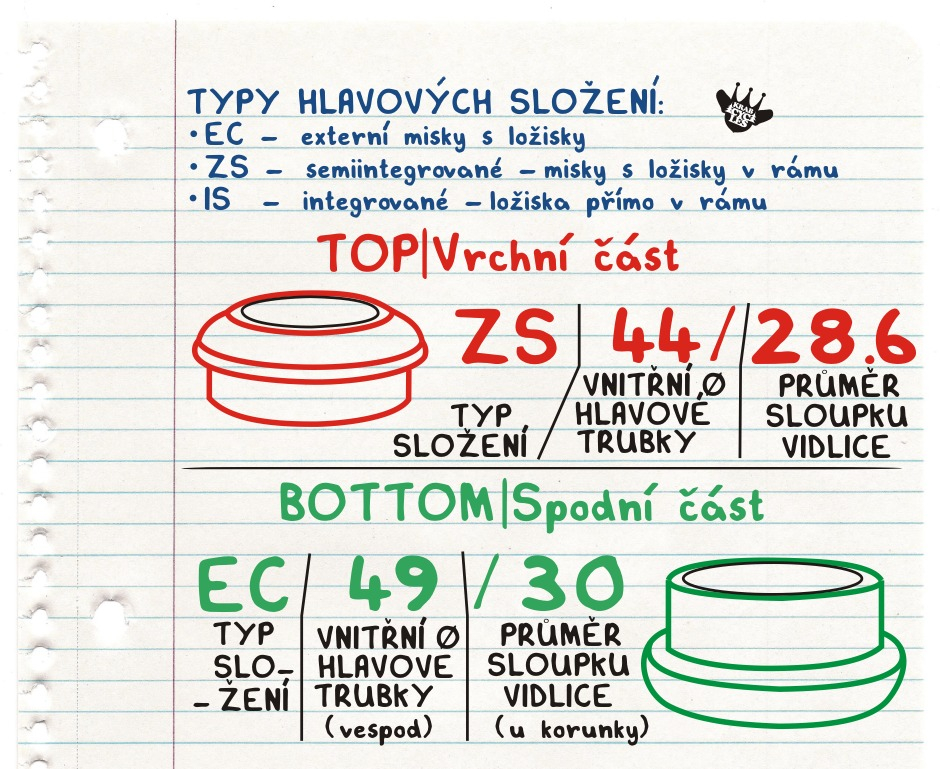 TYPY HLAVOVÝCH SLOŽENÍ:
• EC – externí misky s ložisky
• ZS – semiintegrované – misky s ložisky v rámu
• IS – integrované – ložiska přímo v rámu
KRAB
CYCLES
TOP|Vrchní část
ZS | 44/ | 28.6
TYP
SLOŽENÍ
VNITŘNÍ Ø
HLAVOVÉ
TRUBKY
PRŮMĚR
SLOUPKU
VIDLICE
BOTTOM|Spodní část
EC | 49 | / 30
TYP
SLO-
- ŽENÍ
VNITŘNÍ Ø
HLAVOVE
TRUBKY
(vespod)
PRŮMĚR
SLOUPKU
VIDLICE
(u korunky)